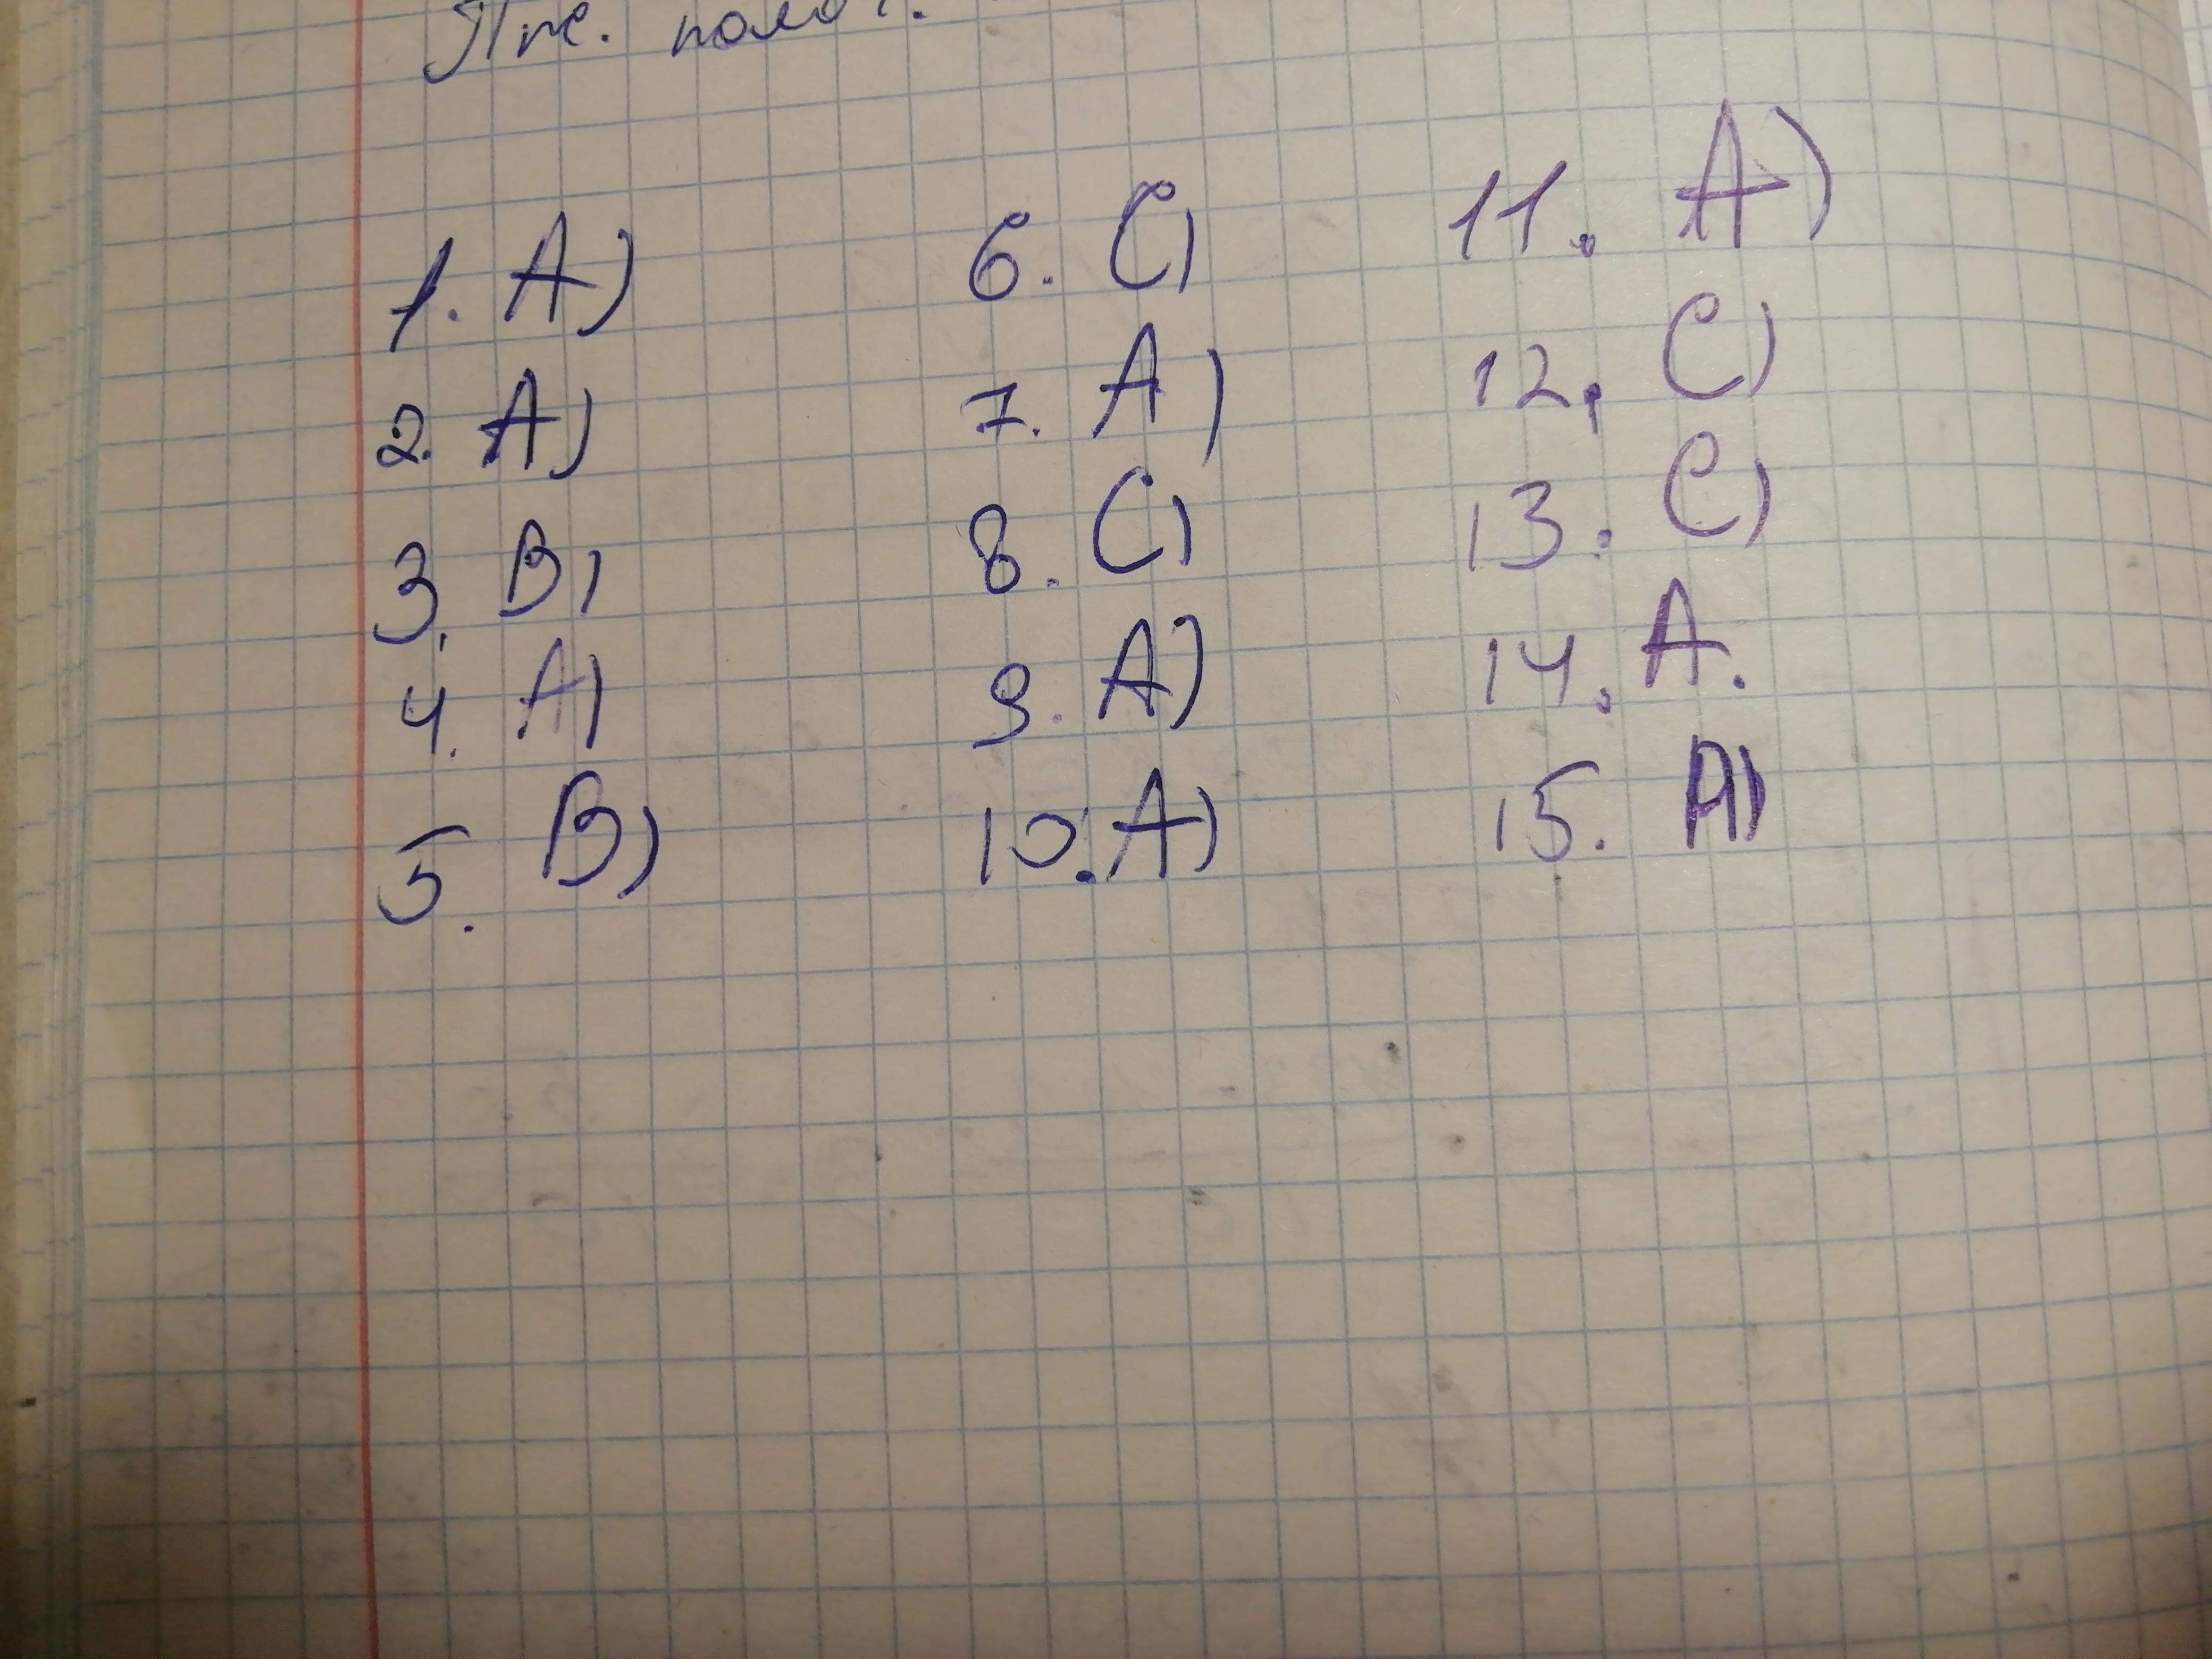 1. A)
2. A)
3. B)
4. A)
5. B)
6. C)
7. A)
8. C)
9. A)
10. A)
11. A)
12, C)
13. C)
14. A.
15. A)